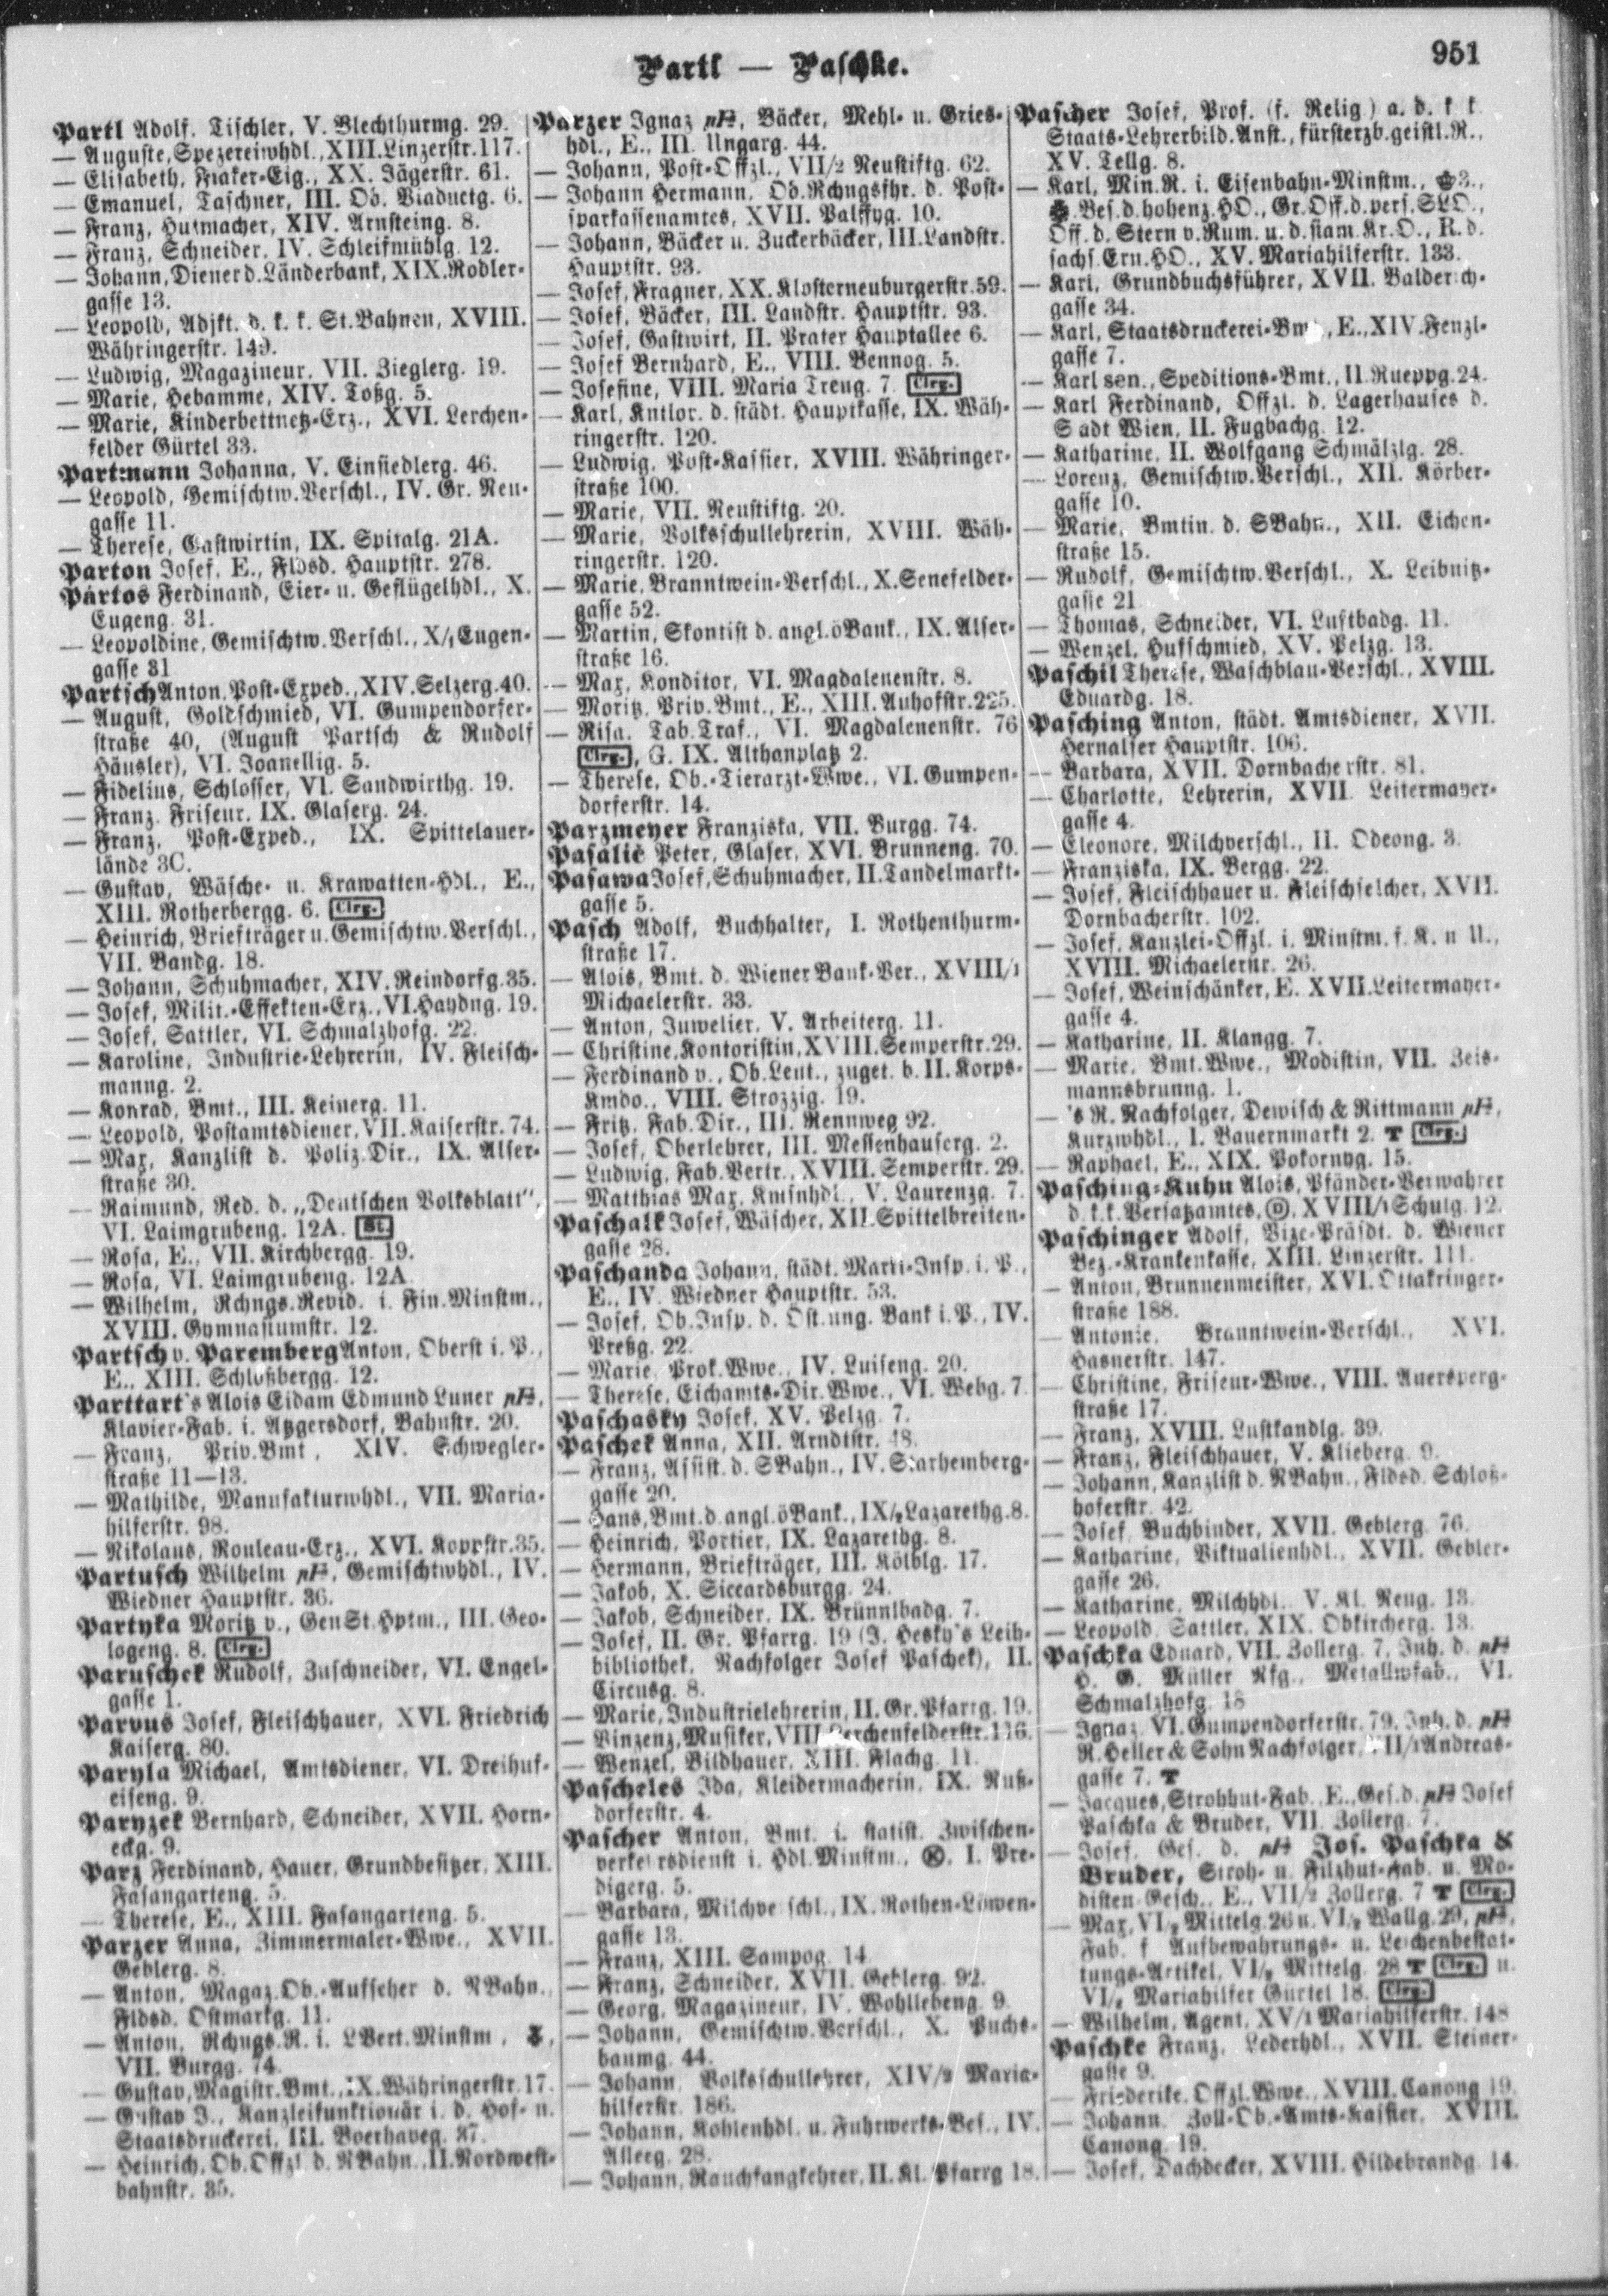 Partl — Paschke.
951
Partl Adolf, Tischler, V. Blechthurmg. 29.
— Auguste, Spezereiwhdl., XIII. Linzerstr. 117.
— Elisabeth, Fiaker-Eig., XX. Jägerstr. 61.
— Emanuel, Taschner, III. Ob. Viaductg. 6.
— Franz, Hutmacher, XIV. Arnsteing. 8.
— Franz, Schneider, IV. Schleifmühlg. 12.
— Johann, Diener d. Länderbank, XIX. Rodler-
gasse 13.
— Leopold, Adjkt. d. k. k. St.Bahnen, XVIII.
Währingerstr. 149.
— Ludwig, Magazineur, VII. Zieglerg. 19.
— Marie, Hebamme, XIV. Toßg. 5.
— Marie, Kinderbettnetz-Erz., XVI. Lerchen-
felder Gürtel 33.
Partmann Johanna, V. Einsiedlerg. 46.
— Leopold, Gemischtw.Verschl., IV. Gr. Neu-
gasse 11.
— Therese, Gastwirtin, IX. Spitalg. 21A.
Parton Josef, E., Fldsd. Hauptstr. 278.
Pártos Ferdinand, Eier- u. Geflügelhdl., X.
Eugeng. 31.
— Leopoldine, Gemischtw. Verschl., X/1 Eugen-
gasse 31
Partsch Anton, Post-Exped., XIV. Selzerg. 40.
— August, Goldschmied, VI. Gumpendorfer-
straße 40, (August Partsch & Rudolf
Häusler), VI. Joanellig. 5.
— Fidelius, Schlosser, VI. Sandwirthg. 19.
— Franz, Friseur, IX. Glaserg. 24.
— Franz, Post-Exped., IX. Spittelauer-
lände 3C.
— Gustav, Wäsche- u. Krawatten-Hdl., E.,
XIII. Rotherbergg. 6. Clrg.
— Heinrich, Briefträger u. Gemischtw. Verschl.,
VII. Bandg. 18.
— Johann, Schuhmacher, XIV. Reindorfg. 35.
— Josef, Milit.-Effekten-Erz., VI. Haydng. 19.
— Josef, Sattler, VI. Schmalzhofg. 22.
— Karoline, Industrie-Lehrerin, IV. Fleisch-
manng. 2.
— Konrad, Bmt., III. Keinerg. 11.
— Leopold, Postamtsdiener, VII. Kaiserstr. 74.
— Max, Kanzlist d. Poliz.Dir., IX. Alser-
straße 30.
— Raimund, Red. d. „Deutschen Volksblatt",
VI. Laimgrubeng. 12A. St.
— Rosa, E., VII. Kirchbergg. 19.
— Rosa, VI. Laimgrubeng. 12A
— Wilhelm, Rchngs.Revid. i. Fin.Minstm.,
XVIII. Gymnasiumstr. 12.
Partsch v. Paremberg Anton, Oberst i. P.,
E., XIII. Schloßbergg. 12.
Parttart's Alois Eidam Edmund Luner pH,
Klavier-Fab. i. Atzgersdorf, Bahnstr. 20.
— Franz, Priv.Bmt, XIV. Schwegler-
straße 11—13.
— Mathilde, Manufakturwhdl., VII. Maria-
hilferstr. 98.
— Nikolaus, Rouleau-Erz., XVI. Koppstr. 35.
Partusch Wilhelm pH, Gemischtwhdl., IV.
Wiedner Hauptstr. 36.
Partyka Moritz v., GenSt.Hptm., III. Geo-
logeng. 8. Clrg.
Paruschek Rudolf, Zuschneider, VI. Engel-
gasse 1.
Parvus Josef, Fleischhauer, XVI. Friedrich
Kaiserg. 80.
Paryla Michael, Amtsdiener, VI. Dreihuf-
eiseng. 9.
Paryzek Bernhard, Schneider, XVII. Horn-
eckg. 9.
Parz Ferdinand, Hauer, Grundbesitzer, XIII.
Fasangarteng. 5.
— Therese, E., XIII. Fasangarteng. 5.
Parzer Anna, Zimmermaler-Wwe., XVII.
Geblerg. 8.
— Anton, Magaz.Ob.-Aufseher d. NBahn.,
Fldsd. Ostmarkg. 11.
— Anton, Rchngs.R. i. LVert.Minstm,
VII. Burgg. 74.
— Gustav, Magistr.Bmt., IX. Währingerstr. 17.
— Gustav J., Kanzleifunktionär i. d. Hof- u.
Staatsdruckerei, III. Boerhaveg. 37.
— Heinrich, Ob.Offzl d. NBahn., II. Nordwest-
bahnstr. 35.
Parzer Ignaz pH, Bäcker, Mehl- u. Gries-
hdl., E., III. Ungarg. 44.
— Johann, Post-Offzl., VII/2 Neustiftg. 62.
— Johann Hermann, Ob.Rchngsfhr. d. Post-
sparkassenamtes, XVII. Palffyg. 10.
— Johann, Bäcker u. Zuckerbäcker, III. Landstr.
Hauptstr. 93.
— Josef, Fragner, XX. Klosterneuburgerstr. 59.
— Josef, Bäcker, III. Landstr. Hauptstr. 93.
— Josef, Gastwirt, II. Prater Hauptallee 6.
— Josef Bernhard, E., VIII. Bennog. 5.
— Josefine, VIII. Maria Treug. 7. Clrg.
— Karl, Kntlor. d. städt. Hauptkasse, IX. Wäh-
ringerstr. 120.
— Ludwig, Post-Kassier, XVIII. Währinger-
straße 100.
— Marie, VII. Neustiftg. 20.
— Marie, Volksschullehrerin, XVIII. Wäh-
ringerstr. 120.
— Marie, Branntwein-Verschl., X. Senefelder-
gasse 52.
— Martin, Skontist d. angl.öBank., IX. Alser-
straße 16.
— Max, Konditor, VI. Magdalenenstr. 8.
— Moritz, Priv.Bmt., E., XIII. Auhofstr. 225.
— Risa, Tab.Traf., VI. Magdalenenstr. 76
Clrg., G. IX. Althanplatz 2.
— Therese, Ob.-Tierarzt-Wwe., VI. Gumpen-
dorferstr. 14.
Parzmeyer Franziska, VII. Burgg. 74.
Pasalić Peter, Glaser, XVI. Brunneng. 70.
Pasawa Josef, Schuhmacher, II. Tandelmarkt-
gasse 5.
Pasch Adolf, Buchhalter, I. Rothenthurm-
straße 17.
— Alois, Bmt. d. Wiener Bank-Ver., XVIII/1
Michaelerstr. 33.
— Anton, Juwelier, V. Arbeiterg. 11.
— Christine, Kontoristin, XVIII. Semperstr. 29.
— Ferdinand v., Ob.Leut., zuget. b. II. Korps-
Kmdo., VIII. Strozzig. 19.
— Fritz, Fab.Dir., III. Rennweg 92.
— Josef, Oberlehrer, III. Messenhauserg. 2.
— Ludwig, Fab.Vertr., XVIII. Semperstr. 29.
— Matthias Max, Kmsnhdl., V. Laurenzg. 7.
Paschalk Josef, Wäscher, XII. Spittelbreiten-
gasse 28.
Paschanda Johann, städt. Markt-Insp. i. P.,
E., IV. Wiedner Hauptstr. 53.
— Josef, Ob.Insp. d. Öst.ung. Bank i. P., IV.
Preßg. 22.
— Marie, Prok.Wwe., IV. Luiseng. 20.
— Therese, Eichamts-Dir.Wwe., VI. Webg. 7.
Paschasky Josef, XV. Pelzg. 7.
Paschek Anna, XII. Arndtstr. 48.
— Franz, Assist. d. SBahn., IV. Starhemberg-
gasse 20.
— Hans, Bmt. d. angl.öBank., IX/2 Lazarethg. 8.
— Heinrich, Portier, IX. Lazarethg. 8.
— Hermann, Briefträger, III. Kölblg. 17.
— Jakob, X. Siccardsburgg. 24.
— Jakob, Schneider, IX. Brünnlbadg. 7.
— Josef, II. Gr. Pfarrg. 19 (J. Hesky's Leih-
bibliothek, Nachfolger Josef Paschek), II.
Circusg. 8.
— Marie, Industrielehrerin, II. Gr. Pfarrg. 19.
— Vinzenz, Musiker, VIII. Lerchenfelderstr. 116.
— Wenzel, Bildhauer, XIII. Flachg. 11.
Pascheles Ida, Kleidermacherin, IX. Nuß-
dorferstr. 4.
Pascher Anton, Bmt. i. statist. Zwischen-
verkehrsdienst i. Hdl.Minstm., K. I. Pre-
digerg. 5.
— Barbara, Milchve schl., IX. Rothen-Löwen-
gasse 13.
— Franz, XIII. Sampog. 14.
— Franz, Schneider, XVII. Geblerg. 92.
— Georg, Magazineur, IV. Wohllebeng. 9.
— Johann, Gemischtw.Verschl., X. Puchs-
baumg. 44.
— Johann, Volksschullehrer, XIV/2 Maria-
hilferstr. 186.
— Johann, Kohlenhdl. u. Fuhrwerks-Bes., IV.
Alleeg. 28.
— Johann, Rauchfangkehrer, II. Kl. Pfarrg 18.
Pascher Josef, Prof. (k. Relig) a. d. k k
Staats-Lehrerbild.Anst., fürsterzb.geistl.R.,
XV. Tellg. 8.
— Karl, Min.R. i. Eisenbahn-Minstm., 3.,
Bes.d.hohenz.HO., Gr.Off.d.pers.SLO.,
Off. d. Stern v.Rum. u. d. siam.Kr.O., R. d.
sachs.Ern.HO., XV. Mariahilferstr. 133.
— Karl, Grundbuchsführer, XVII. Balderich-
gasse 34.
— Karl, Staatsdruckerei-Bmt., E., XIV. Fenzl-
gasse 7.
— Karl sen., Speditions-Bmt., II. Rueppg. 24.
— Karl Ferdinand, Offzl. d. Lagerhauses d.
Stadt Wien, II. Fugbachg. 12.
— Katharine, II. Wolfgang Schmälzlg. 28.
— Lorenz, Gemischtw.Verschl., XII. Körber-
gasse 10.
— Marie, Bmtin. d. SBahn., XII. Eichen-
straße 15.
— Rudolf, Gemischtw.Verschl., X. Leibnitz-
gasse 21
— Thomas, Schneider, VI. Luftbadg. 11.
— Wenzel, Hufschmied, XV. Pelzg. 13.
Paschil Therese, Waschblau-Verschl., XVIII.
Eduardg. 18.
Pasching Anton, städt. Amtsdiener, XVII.
Hernalser Hauptstr. 106.
— Barbara, XVII. Dornbacherstr. 81.
— Charlotte, Lehrerin, XVII. Leitermayer-
gasse 4.
— Eleonore, Milchverschl., II. Odeong. 3.
— Franziska, IX. Bergg. 22.
— Josef, Fleischhauer u. Fleischselcher, XVII.
Dornbacherstr. 102.
— Josef, Kanzlei-Offzl. i. Minstm. f. K. u U.,
XVIII. Michaelerstr. 26.
— Josef, Weinschänker, E. XVII. Leitermayer-
gasse 4.
— Katharine, II. Klangg. 7.
— Marie, Bmt.Wwe., Modistin, VII. Zeis-
mannsbrunng. 1.
— 's R. Nachfolger, Dewisch & Rittmann pH,
Kurzwhdl., I. Bauernmarkt 2. T Clrg.
— Raphael, E., XIX. Pokornyg. 15.
Pasching-Kuhn Alois, Pfänder-Verwahrer
d. k.k. Versatzamtes, D. XVIII/1 Schulg. 12.
Paschinger Adolf, Vize-Präsdt. d. Wiener
Bez.-Krankenkasse, XIII. Linzerstr. 111.
— Anton, Brunnenmeister, XVI. Ottakringer-
straße 188.
— Antonie, Branntwein-Verschl., XVI.
Hasnerstr. 147.
— Christine, Friseur-Wwe., VIII. Auersperg-
straße 17.
— Franz, XVIII. Lustkandlg. 39.
— Franz, Fleischhauer, V. Klieberg. 9.
— Johann, Kanzlist d. NBahn., Fldsd. Schloß-
hoferstr. 42.
— Josef, Buchbinder, XVII. Geblerg. 76.
— Katharine, Viktualienhdl., XVII. Gebler-
gasse 26.
— Katharine, Milchhdl. V. Kl. Neug. 13.
— Leopold, Sattler, XIX. Obkircherg. 13.
Paschka Eduard, VII. Zollerg. 7, Inh. d. pH
H. G. Müller Nfg., Metallwfab., VI.
Schmalzhofg. 18
— Ignaz, VI. Gumpendorferstr. 79, Inh. d. pH
R. Heller & Sohn Nachfolger, VII/1 Andreas-
gasse 7. T
— Jacques, Strohhut-Fab., E., Ges. d. pH Josef
Paschka & Bruder, VII. Zollerg. 7.
— Josef, Ges. d. pH Jos. Paschka &
Bruder, Stroh- u. Filzhut-Fab. u. Mo-
disten-Gesch., E., VII/2 Zollerg. 7 T Clrg.
— Max, VI/2 Mittelg. 26 u. VI/2 Wallg. 29, pH,
Fab. f Aufbewahrungs- u. Leichenbestat-
tungs-Artikel, VI/2 Mittelg. 28 T Clrg. u.
VI/2 Mariahilfer Gürtel 18. Clrg.
— Wilhelm, Agent, XV/1 Mariahilferstr. 148
Paschke Franz, Lederhdl., XVII. Steiner-
gasse 9.
— Friederike, Offzl.Wwe., XVIII. Canong 19.
— Johann, Zoll-Ob.-Amts-Kassier, XVIII.
Canong. 19.
— Josef, Dachdecker, XVIII. Hildebrandg. 14.